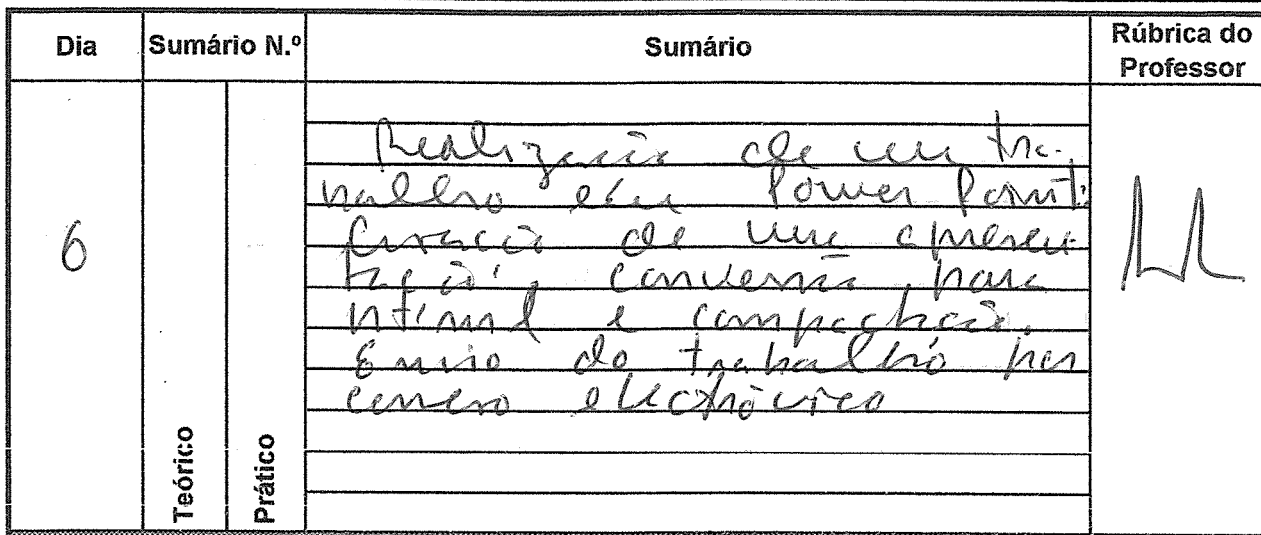 Dia
Sumário N.º
Sumário
Rúbrica do
Professor
6
Teórico
Prático
Realização de um tra-
balho em Power Point:
Criação de uma apresen-
tação, conversão para
html e compactação.
Envio do trabalho por
correio electrónico